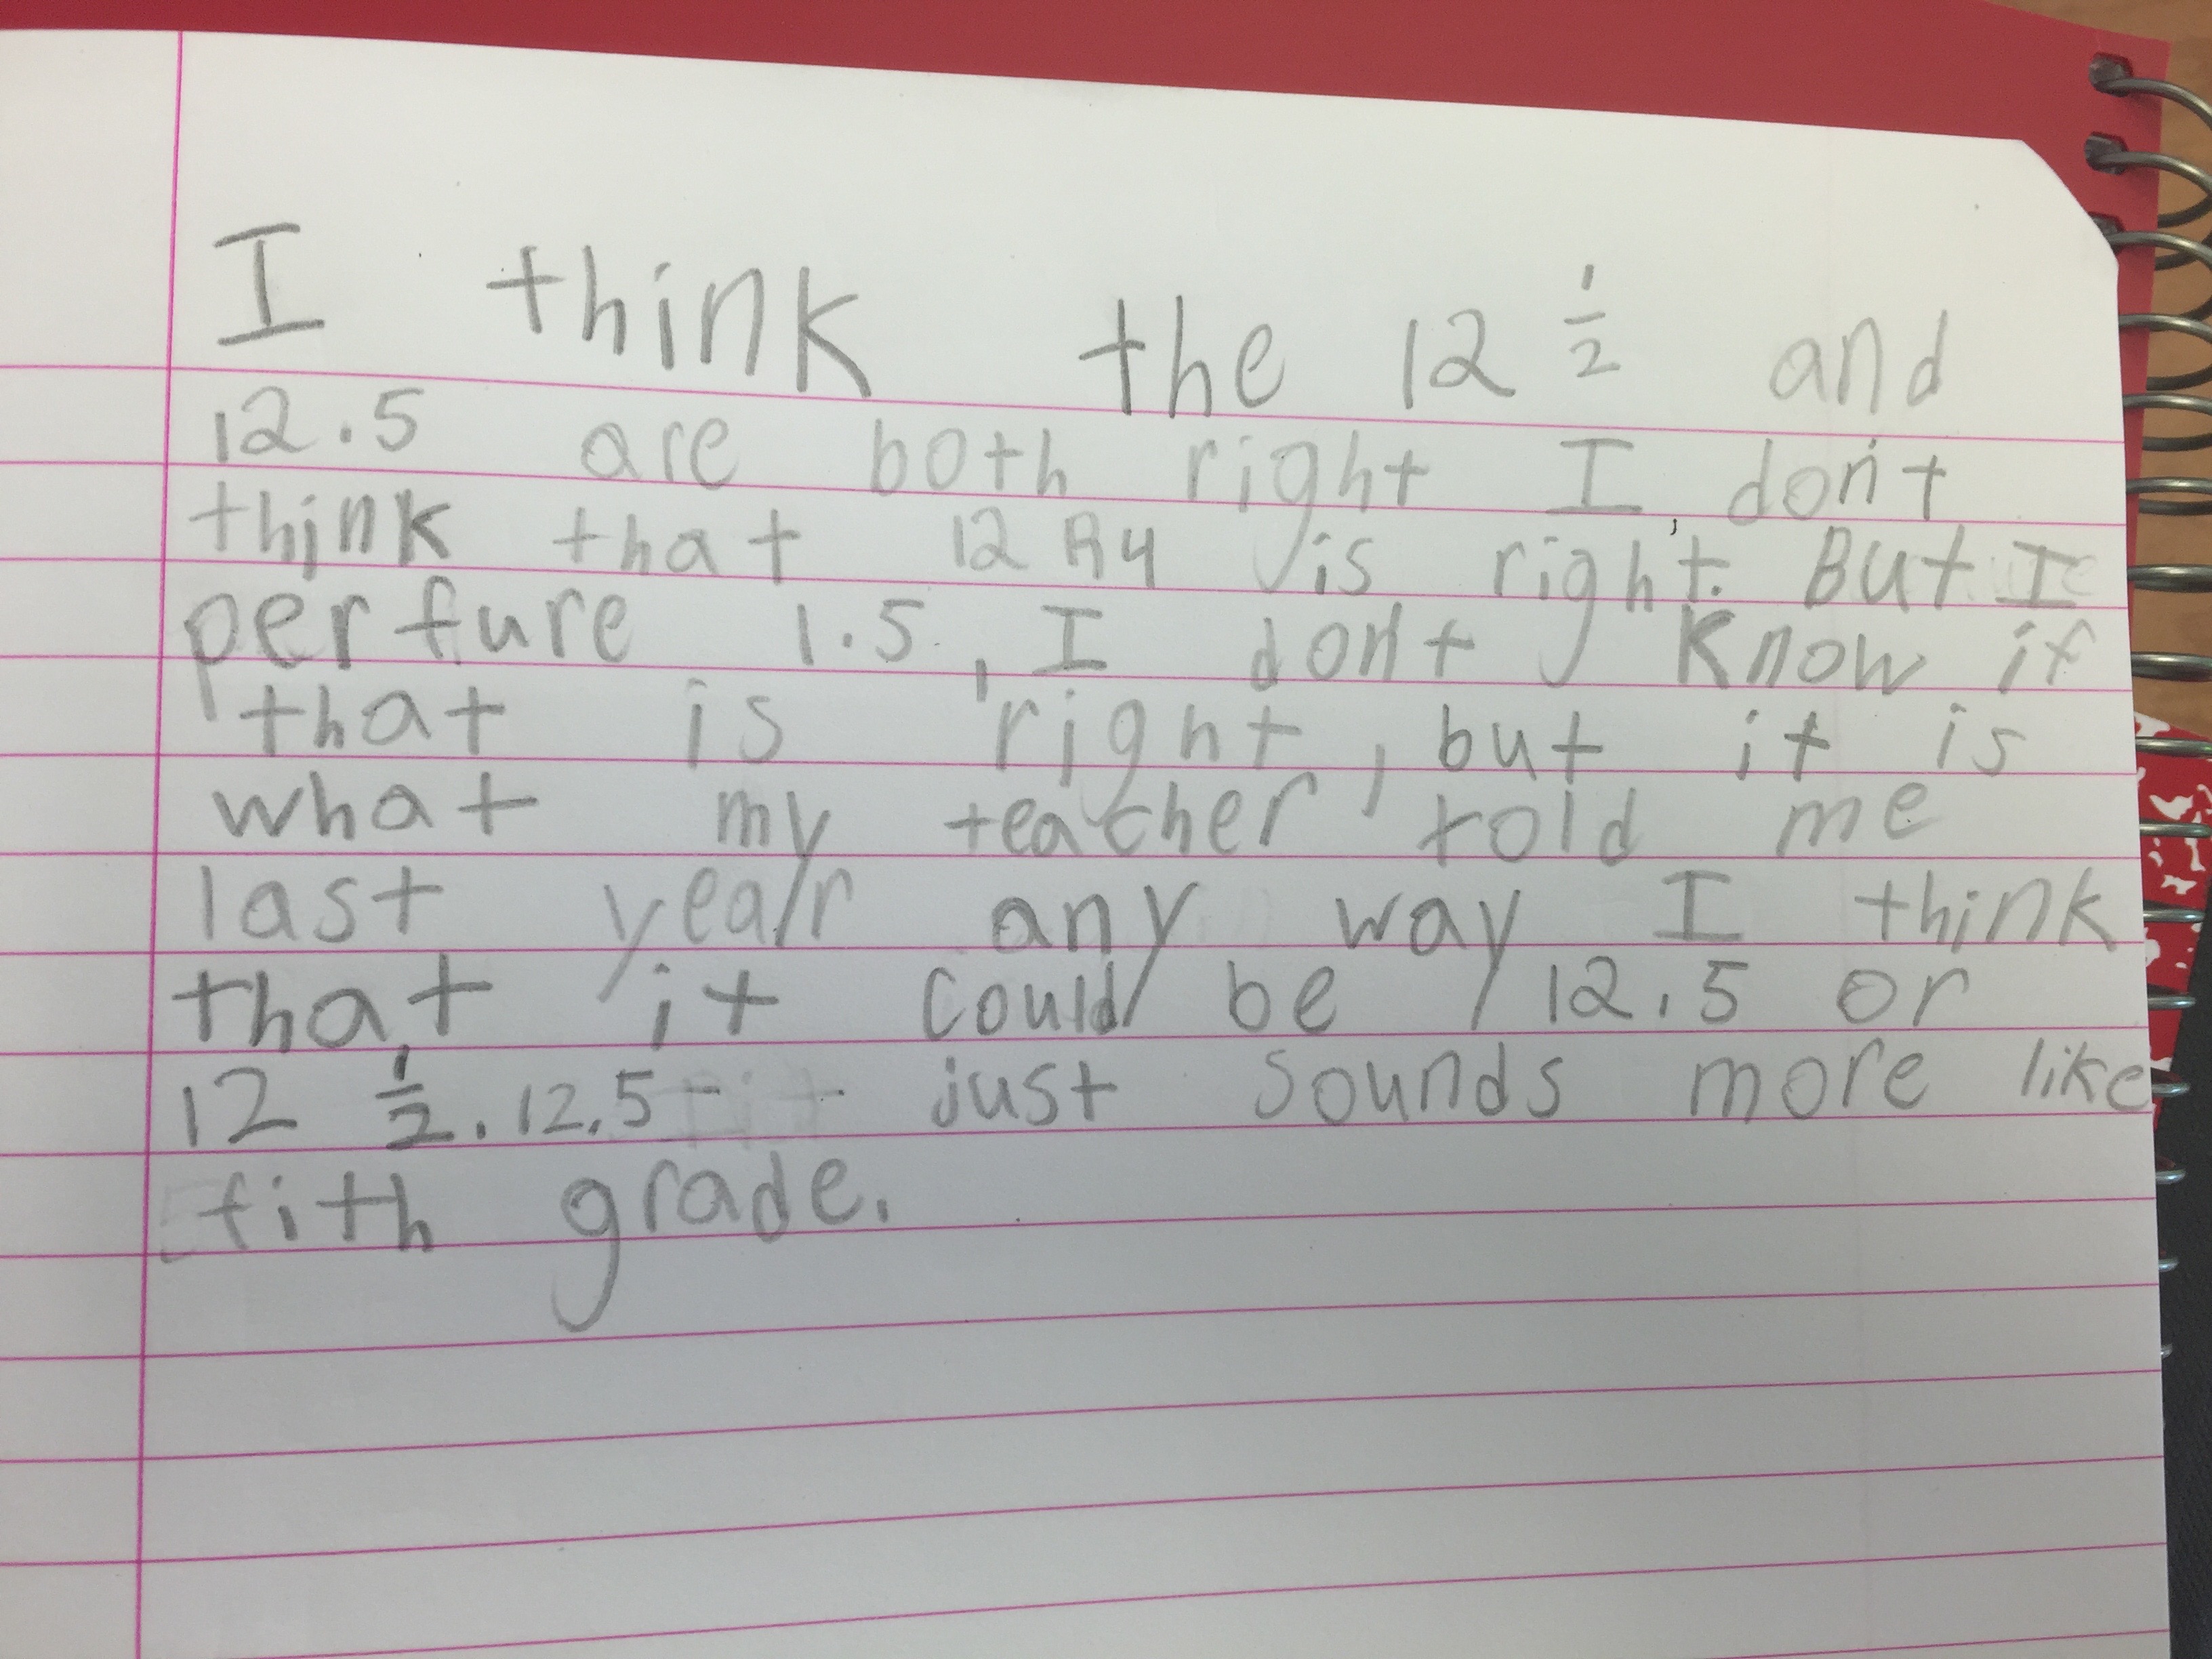 I think the 12 1/2 and
12.5 are both right I don't
think that 12 R4 is right. But I
perfure 1.5, I don't know if
that is right, but it is
what my teacher told me
last year any way I think
that it could be 12.5 or
12 1/2. 12.5 just sounds more like
fith grade.